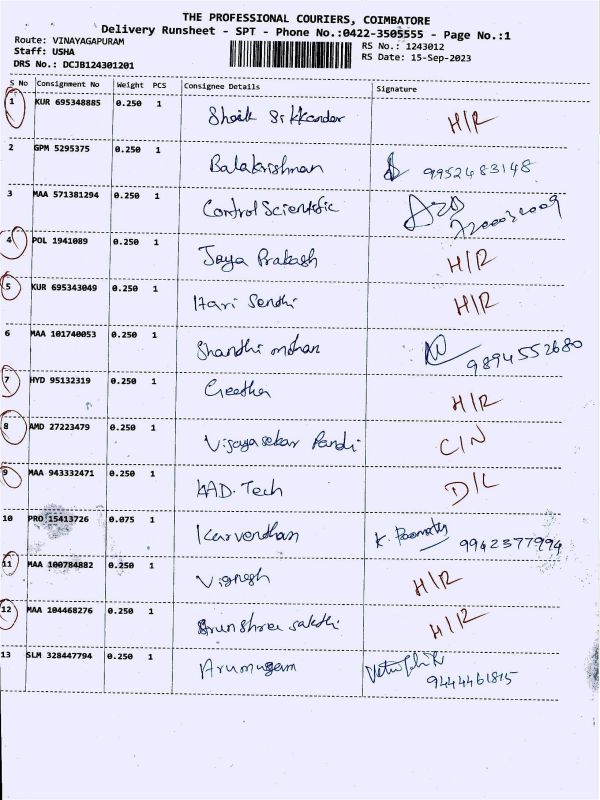 THE PROFESSIONAL COURIERS, COIMBATORE
Delivery Runsheet - SPT - Phone No.:0422-3505555 - Page No.:1
Route: VINAYAGAPURAM
Staff: USHA
DRS No.: DCJB124301201
RS No.: 1243012
RS Date: 15-Sep-2023
S No Consignment No Weight PCS Consignee Details Signature
1 KUR 695348885 0.250 1 Sheik Sikkandar H/R
2 GPM 5295375 0.250 1 Balakrishnan 9952483148
3 MAA 571381294 0.250 1 Control Scientific
4 POL 1941089 0.250 1 Jaya Prakash H/R
5 KUR 695343049 0.250 1 Hari Sendhi H/R
6 MAA 101740053 0.250 1 Shandhi mohan 9894552680
7 HYD 95132319 0.250 1 Geetha H/R
8 AMD 27223479 0.250 1 Vijayasekar Pandi C/N
9 MAA 943332471 0.250 1 AAD. Tech D/L
10 PRO 15413726 0.075 1 Karvendhan 9942377994
11 MAA 100784882 0.250 1 Vignesh H/R
12 MAA 104468276 0.250 1 Arunshree sakthi H/R
13 SLM 328447794 0.250 1 Arumugam 9444461815